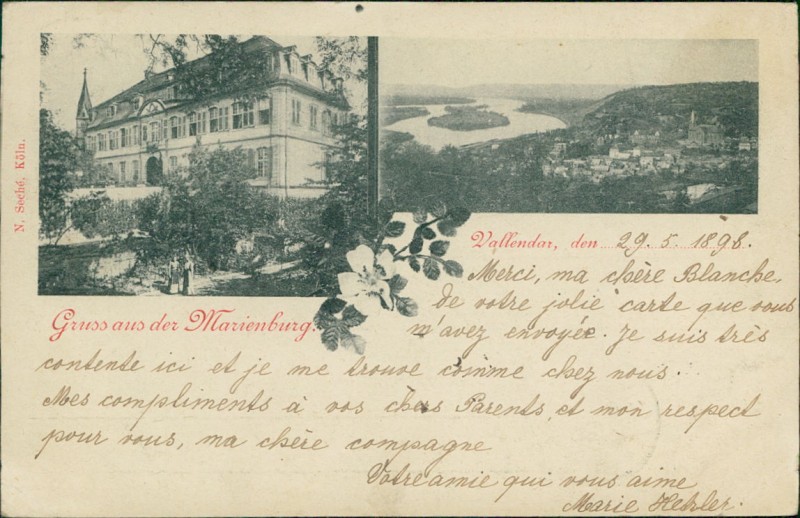 N. Seché, Köln.
Gruss aus der Marienburg.
Vallendar, den 29. 5. 1898.
Merci, ma chère Blanche,
de votre jolie carte que vous
m'avez envoyée. Je suis très
contente ici et je me trouve comme chez nous.
Mes compliments à vos chers Parents, et mon respect
pour vous, ma chère compagne
Votre amie qui vous aime
Marie